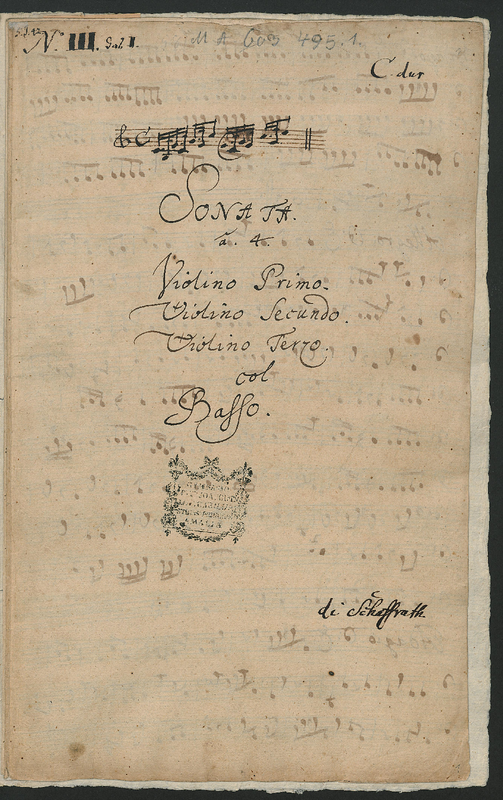 N. III. Gal. I.
C dur
SONATA.
à. 4.
Violino Primo.
Violino Secundo.
Violino Terzo.
col
Basso.
di Schaffrath